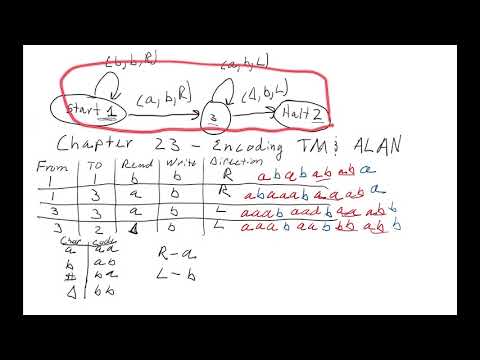 (b,b,R) (a,b,L)
(a,b,R) (Δ,b,L)
Start 1 3 Halt 2
Chapter 23 - Encoding TM's ALAN
From TO Read Write Direction
1 1 b b R ababababa
1 3 a b R abaaabaaaba
3 3 a b L aaabaaabaaabb
3 2 Δ b L aaabaabbbabb
Char code
a aa R-a
b ab L-b
# ba
Δ bb